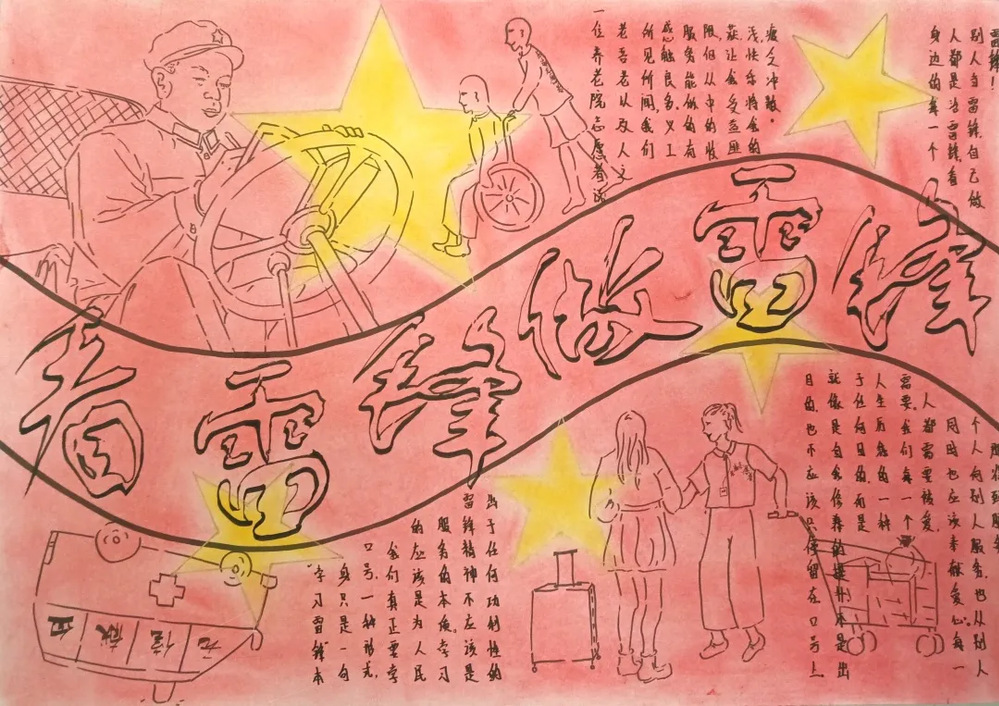 一位养老院志愿者说
老吾老以及人之
所见所闻,我们
感触良多义工
服务能做的有
限但从中的收
获让会受益匪
浅快乐将会的
疲乏冲散。
身边的每一个
人都是活雷锋,看
别人当雷锋自己做
雷锋!
看雷锋做雷锋
无偿献血
“学习雷锋本
身只是一句
口号,一种形式,
我们真正要学
的应该是为人民
服务的本质。学习
雷锋精神不应该是
出于任何功利性的
目的,也不应该只停留在口号上
就像是自我修养的提升不是出
于任何目的而是
人生 的一种
需要。我们每一个
人都需要被爱
同时也应该奉献爱心。每一
个人向别人服务,也从别人
得到服务